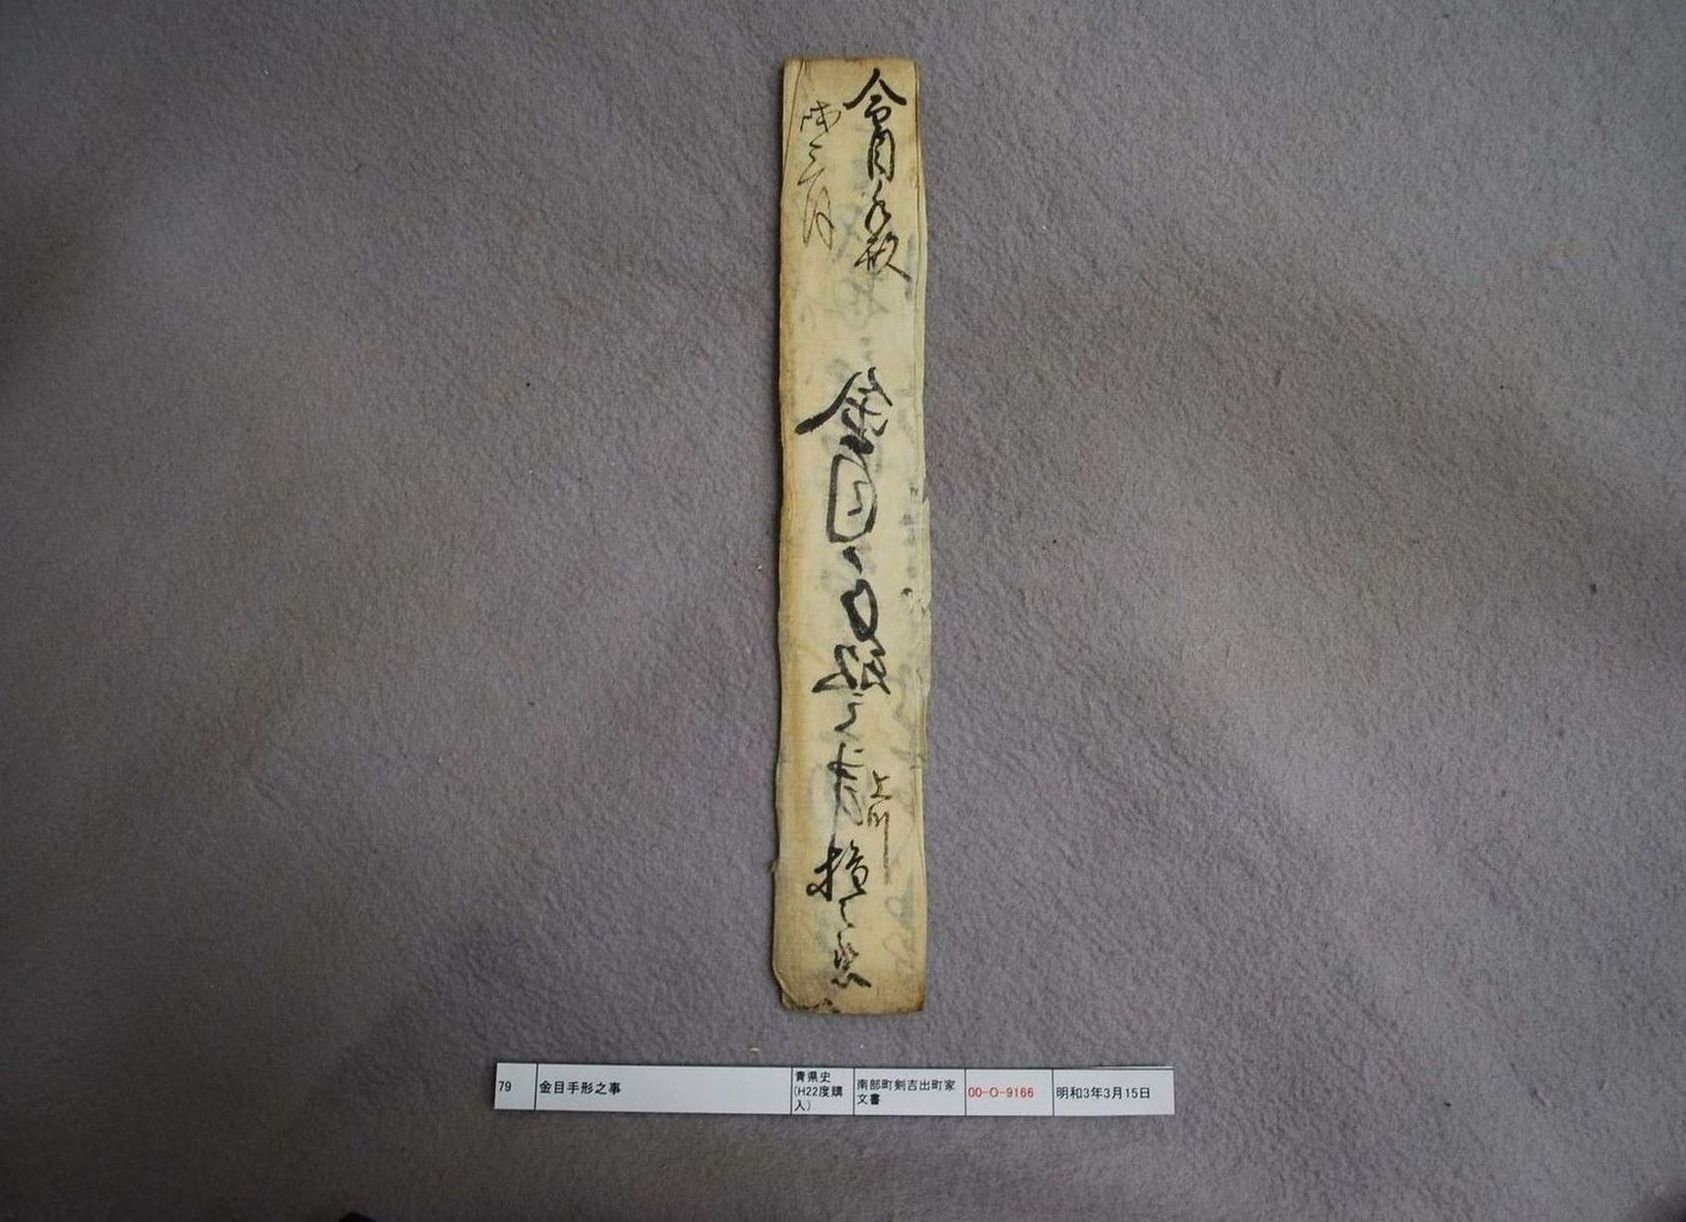 金目手形
戌三月
金目手形之事
上川
79
金目手形之事
青県史
(H22度購
入)
南部町剣吉出町家
文書
00-O-9166
明和3年3月15日